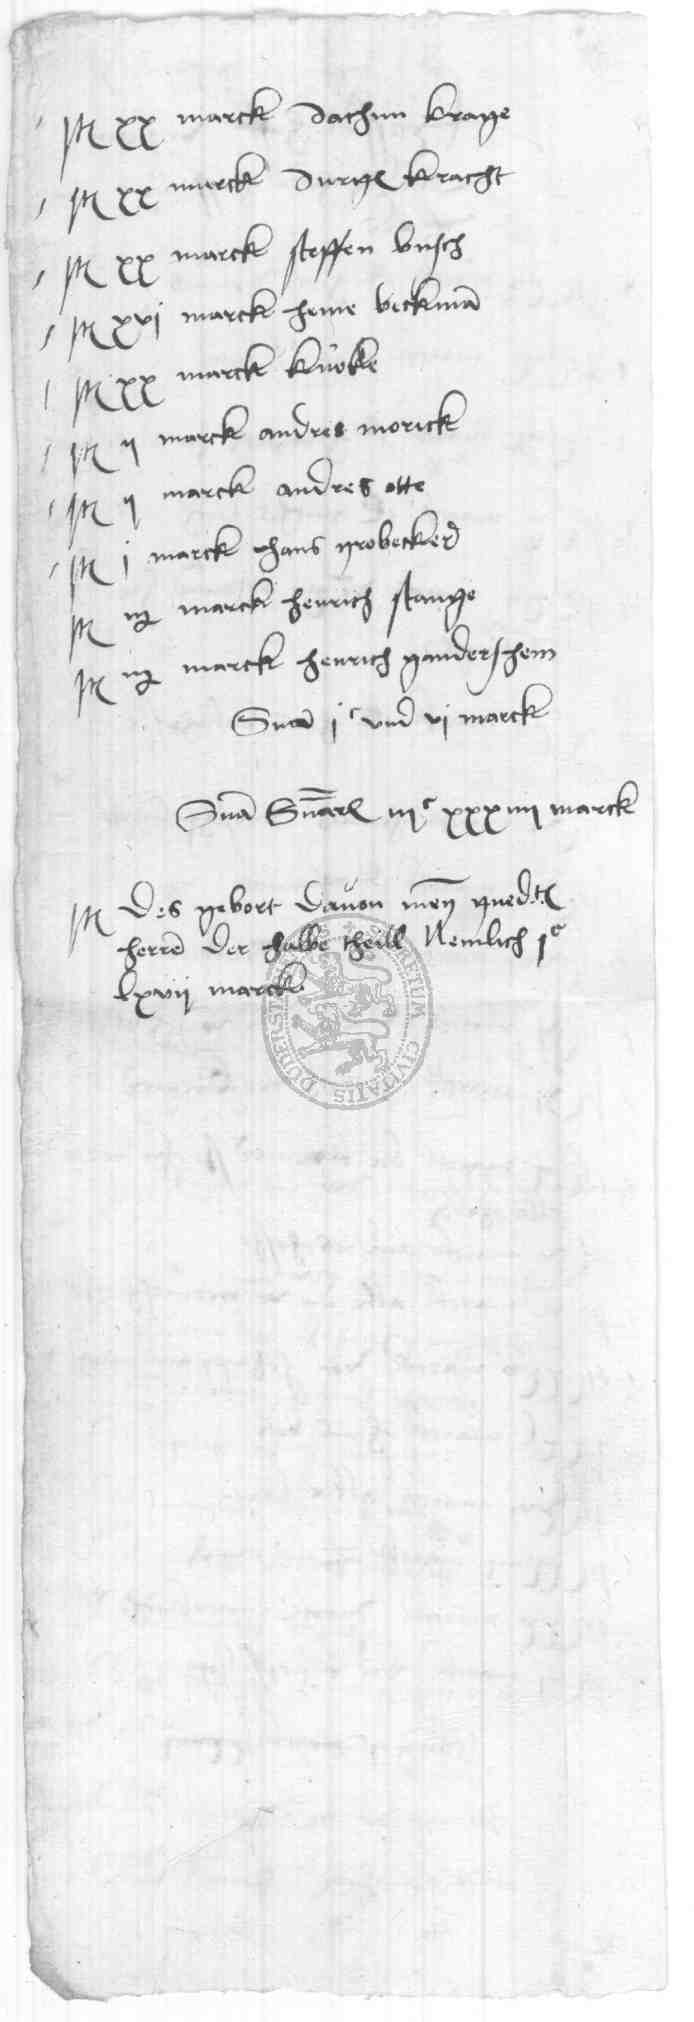 It xx marck dachim krage
It xx marck kracht
It xx marck steffen busch
It xvj marck heine beckmā
It xx marck
It ij marck andres morick
It ij marck andres otte
It j marck hans grobecker
It iij marck henrich stange
It iij marck henrich gandershem
Suma jc vnd vj marck
Suma Sumarū iijc xxxiiij marck
It des gebort davon mey gned
herrē der halbe theill Nemlich jc
lxvij marck
RETUM CIVITATIS DUDERST